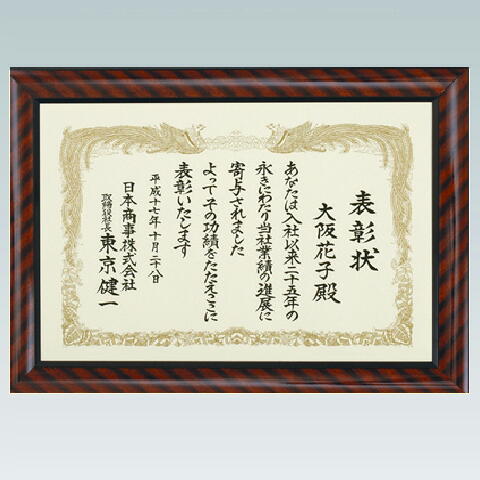 表彰状
大阪花子殿
あなたは入社以来二十五年の
永きにわたり当社業績の進展に
寄与されました
よってその功績をたたえここに
表彰いたします
平成十七年十月二十八日
日本商事株式会社
取締役社長 東京健一